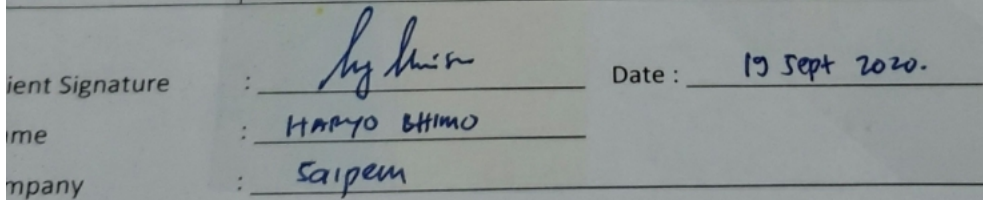 ient Signature : Date : 19 Sept 2020.
me : HARYO BHIMO
mpany : Saipem